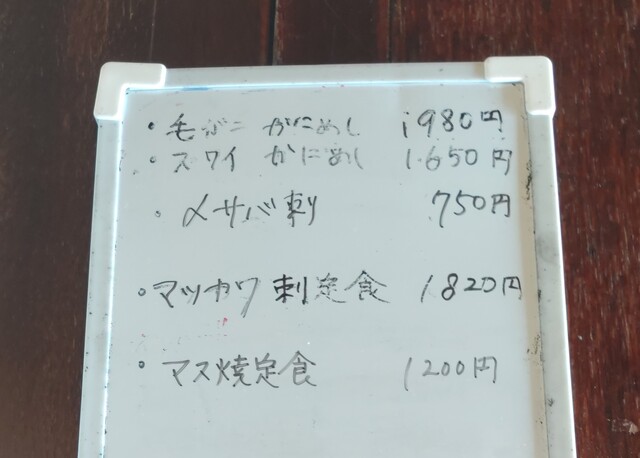 ・毛がニ かにめし 1980円
・スワイ かにめし 1.650円
・〆サバ刺 750円
・マツカワ刺定食 1820円
・マス焼定食 1200円